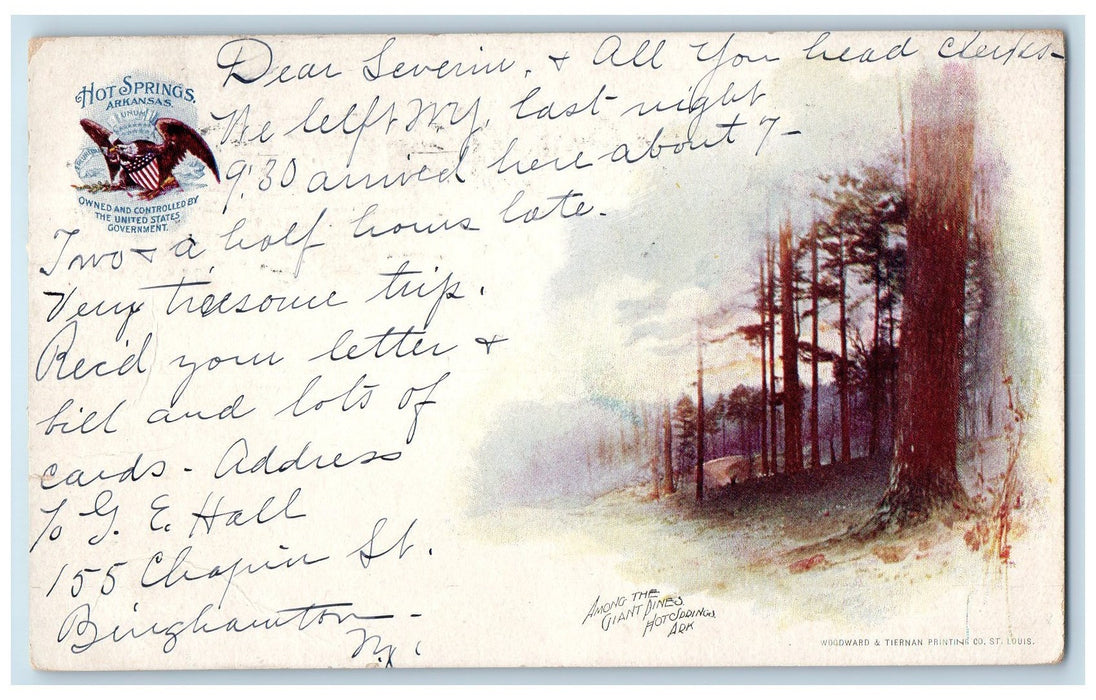 HOT SPRINGS.
ARKANSAS.
UNUM
OWNED AND CONTROLLED BY
THE UNITED STATES
GOVERNMENT.
Dear Severin, + All You head clerks-
We lelft N.Y. last night
9:30 arrived here about 7-
Two + a half hours late.
Very tiresome trip.
Rec'd your letter +
bill and lots of
cards - Address
to G. E. Hall
155 Chapin St.
Binghamton -
N.Y.
AMONG THE
GIANT PINES.
HOT SPRINGS,
ARK
WOODWARD & TIERNAN PRINTING CO. ST. LOUIS.